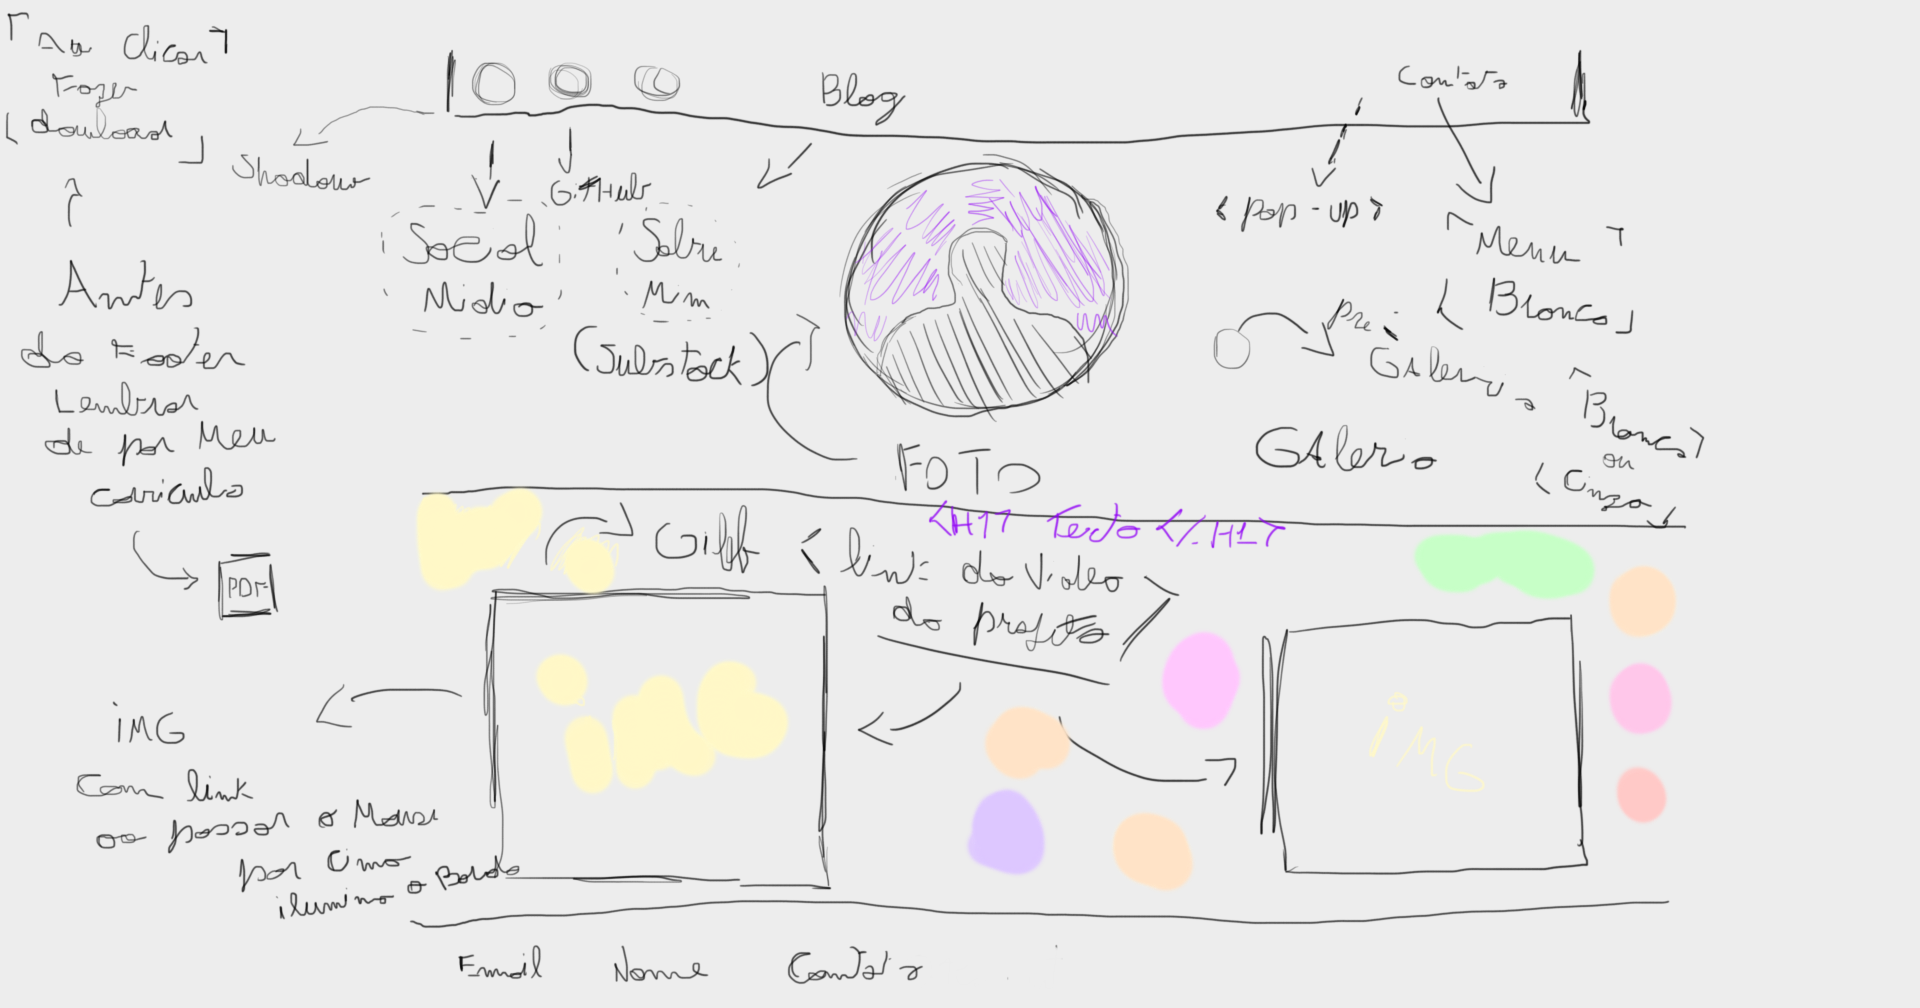 Ao Clicar
Fazer
download
Shadow
Antes
do Footer
Lembrar
de por Meu
curriculo
PDF
Blog
Contato
GitHub
Social
Midia
Sobre
Mim
(Substack)
< pop-up >
Menu
Branco
pré
Galeria
Branco
ou
Cinza
FOTO
Galeria
<H1> Texto </H1>
Giff
< link do Video
do projeto >
iMG
iMG
iMG
Com link
ao passar o Mouse
por Cima
ilumina a Borda
Email Nome Contato